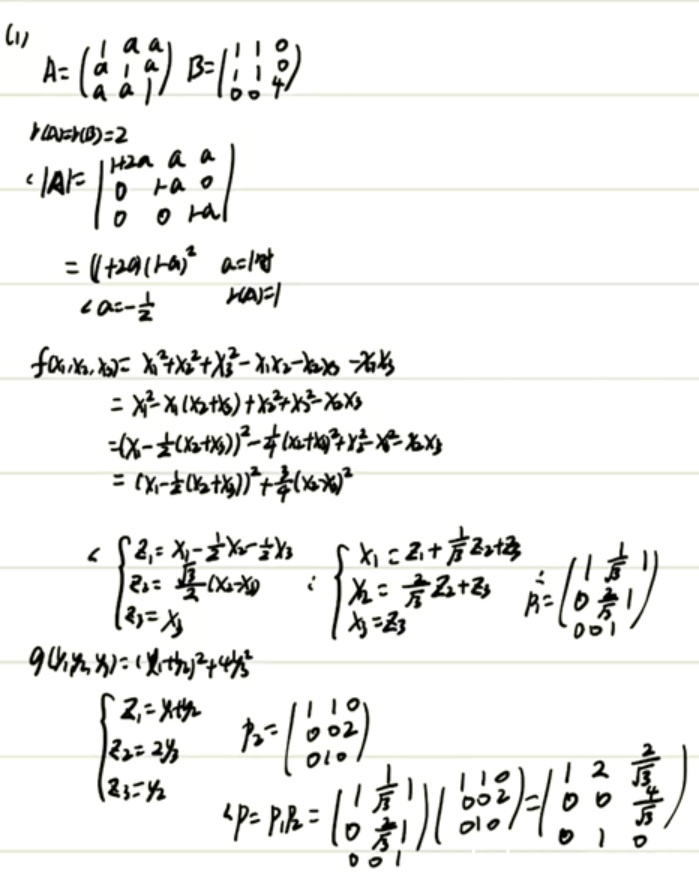 (1)
A=(1 a a; a 1 a; a a 1) B=(1 1 0; 1 1 0; 0 0 4)
r(A)=r(B)=2
∴|A|=|1+2a a a; 0 1-a 0; 0 0 1-a|
=(1+2a)(1-a)² a=1时
∴a=-1/2 r(A)=1
f(x₁,x₂,x₃)=x₁²+x₂²+x₃²-x₁x₂-x₂x₃-x₁x₃
=x₁²-x₁(x₂+x₃)+x₂²+x₃²-x₂x₃
=(x₁-1/2(x₂+x₃))²-1/4(x₂+x₃)²+x₂²-x₃²-x₂x₃
=(x₁-1/2(x₂+x₃))²+3/4(x₂-x₃)²
∴{z₁=x₁-1/2x₂-1/2x₃ ∴{x₁=z₁+1/√3z₂+z₃
z₂=√3/2(x₂-x₃) x₂=2/√3z₂+z₃ ∴P₁=(1 1/√3 1; 0 2/√3 1; 0 0 1)
z₃=x₃ x₃=z₃
g(y₁,y₂,y₃)=(y₁+y₂)²+4y₃²
{z₁=y₁+y₂
z₂=2y₃ P₂=(1 1 0; 0 0 2; 0 1 0)
z₃=y₂
∴P=P₁P₂=(1 1/√3 1; 0 2/√3 1; 0 0 1)(1 1 0; 0 0 2; 0 1 0)=(1 2 2/√3; 0 0 4/√3; 0 1 0)